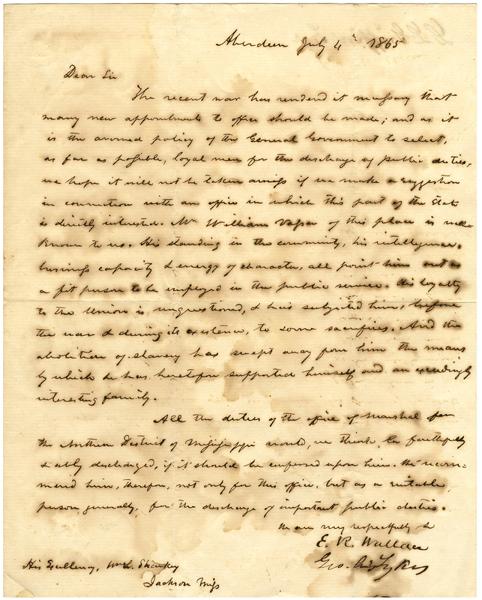 Aberdeen July 4th 1865
Dear Sir
The recent war has rendered it necessary that
many new appointments to office should be made; and as it
is the avowed policy of the General Government to select,
as far as possible, loyal men for the discharge of public duties,
we hope it will not be taken amiss if we make a suggestion
in connection with an office in which this part of the State
is directly interested. Mr William Vasser of this place is well
known to us. His standing in the community, his intelligence,
business capacity & energy of character, all point him out as
a fit person to be employed in the public service. His loyalty
to the Union is unquestioned, & has subjected him, before
the war & during its existence, to some sacrifices. And the
abolition of slavery has swept away from him the means
by which he has heretofore supported himself and an exceedingly
interesting family.
All the duties of the office of Marshal for
the Northern District of Mississippi would, we think be faithfully
& ably discharged, if it should be conferred upon him. We recom-
mend him, therefore, not only for this office, but as a suitable
person, generally, for the discharge of important public duties.
We are very respectfully &
E. R. Wallace
Geo. Sykes
His Excellency, Wm L. Sharkey
Jackson Miss